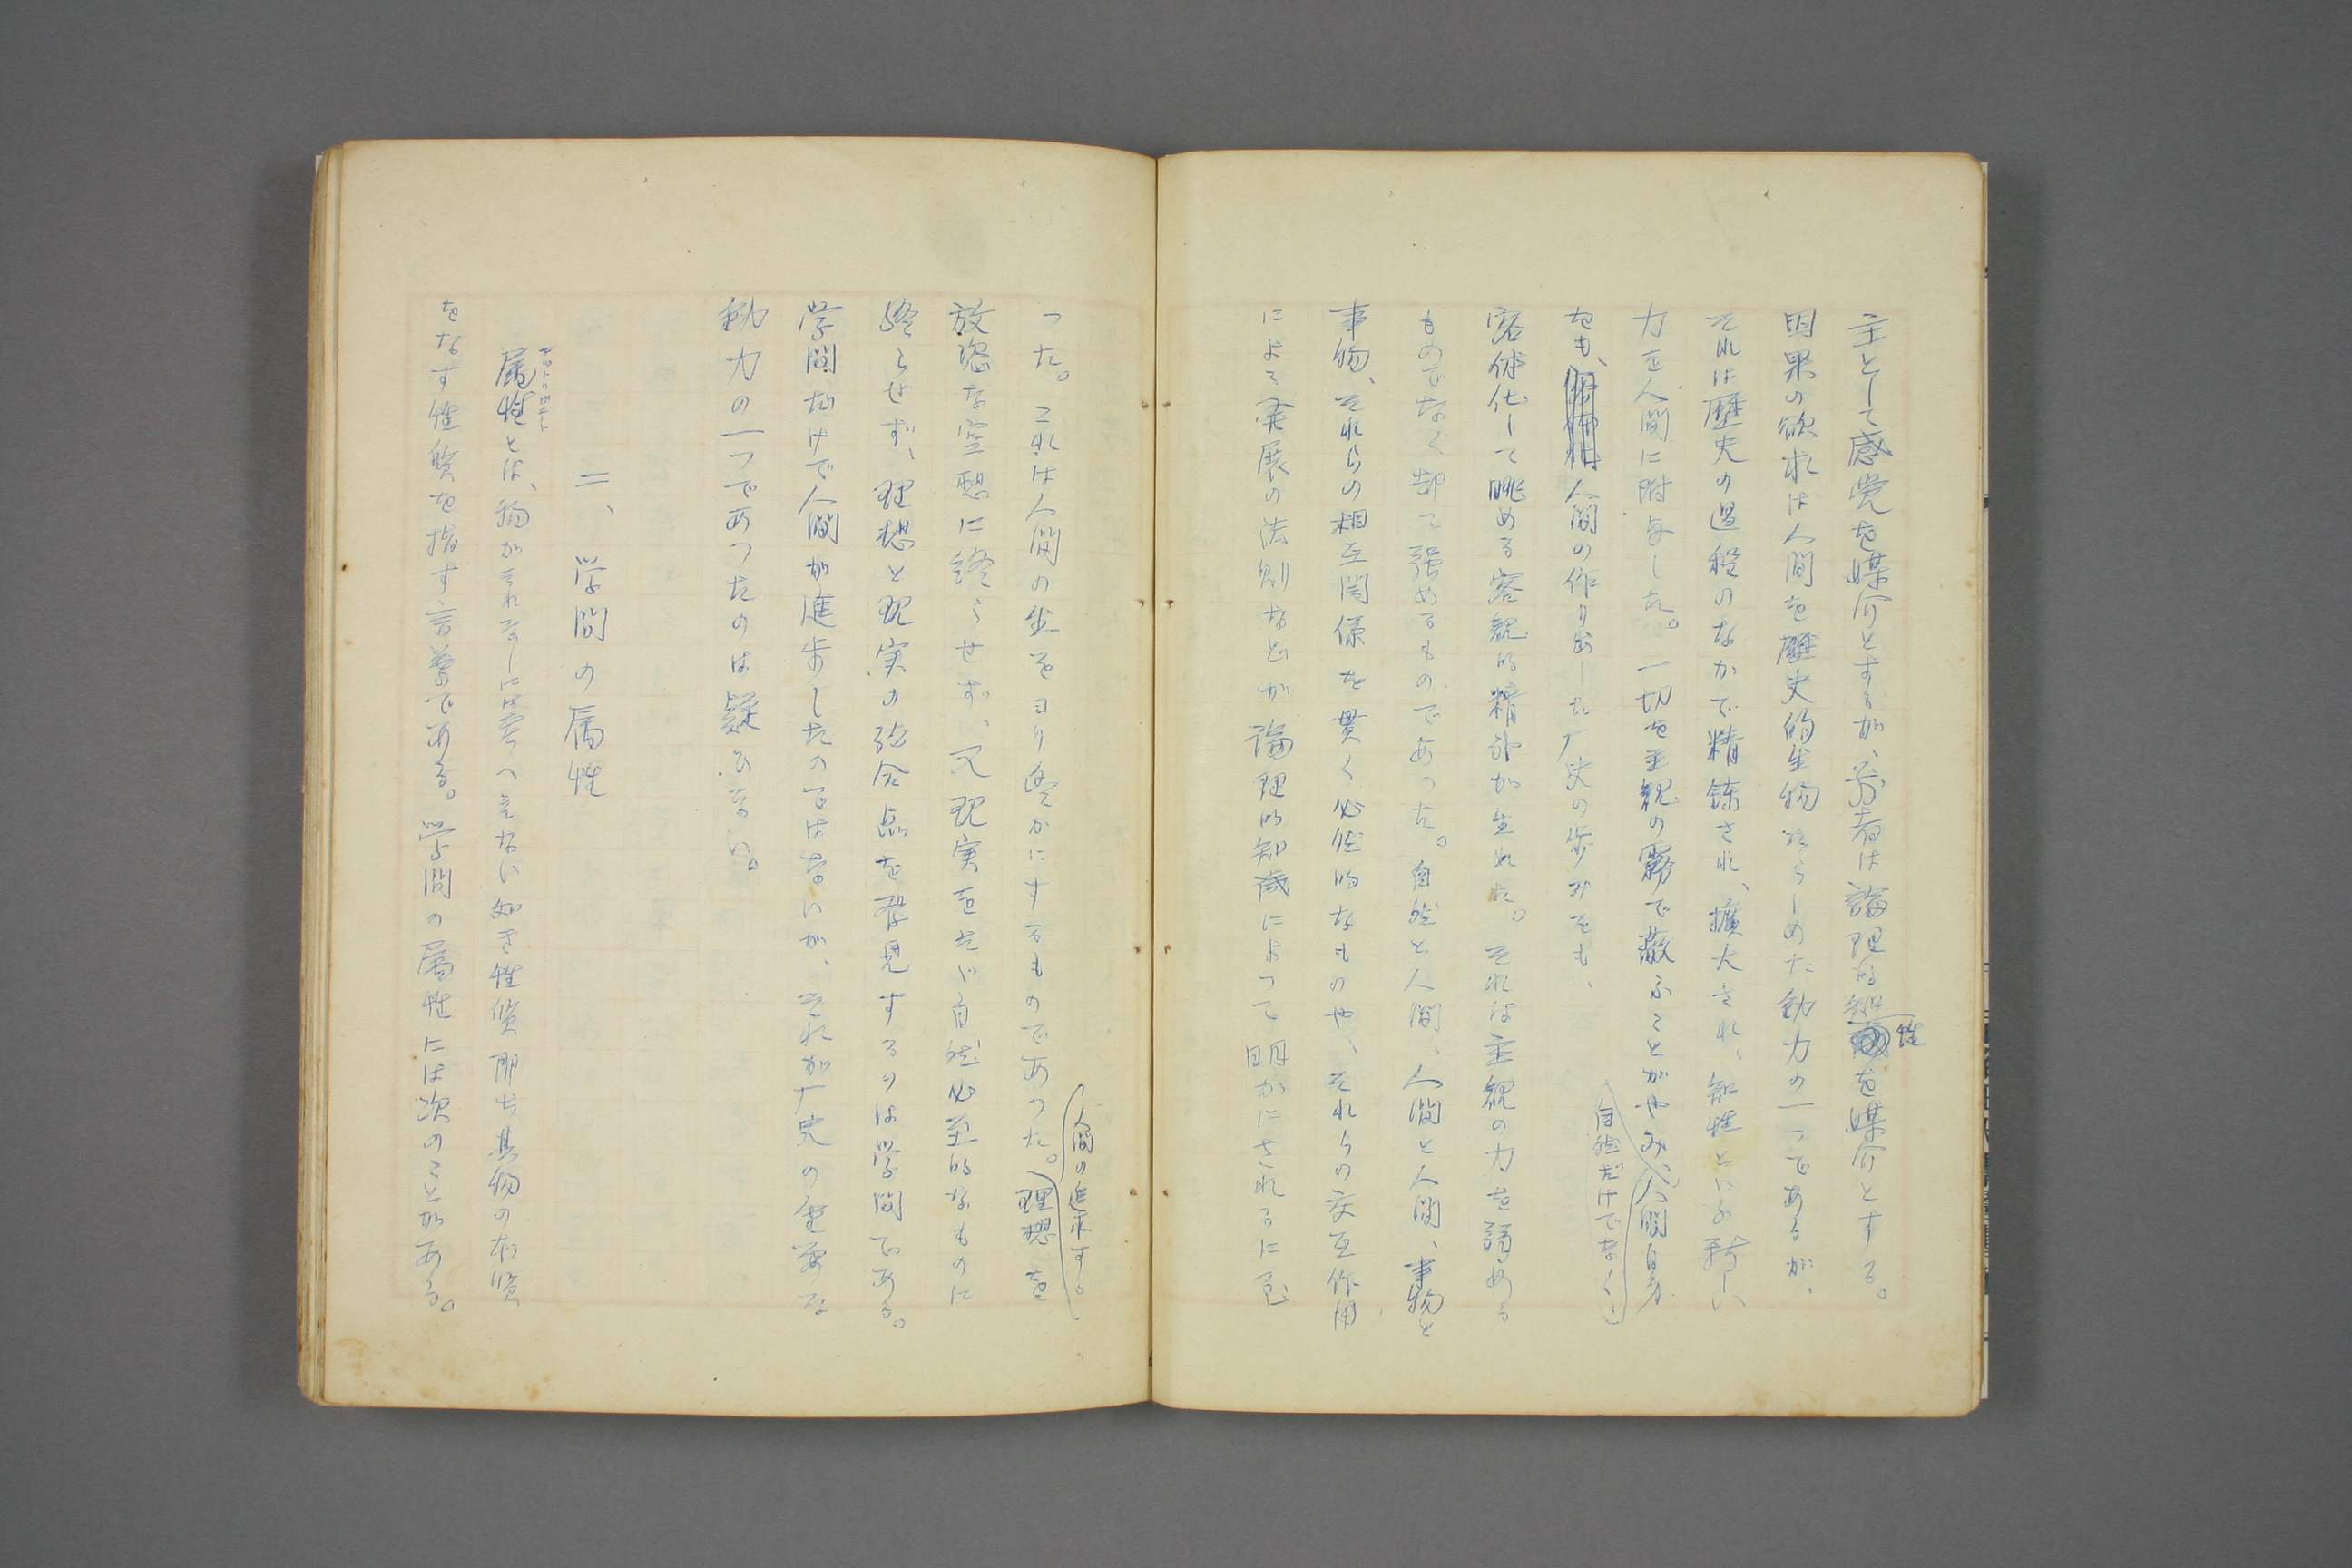 主として感覚を媒介とするが、前者は論理な知性を媒介とする。
因果の欲求は人間を歴史的生物たらしめた動力の一つであるが、
それは歴史の過程のなかで精錬され、擴大され、知性といふ新しい
力を人間に附与した。一切を主観の霧で蔽ふことがやみ、人間自身
自然だけでなく、
をも、人間の作り出した厂史の歩みをも、
客体化して眺める客観的精神が生れた。それは主観の力を弱める
ものでなく却て強めるものであった。自然と人間、人間と人間、事物と
事物、それらの相互関係を貫く必然的なものや、それらの交互作用
によて発展の法則などが論理的知識によって明かにされるに至
つた。これは人間の生をヨリ豊かにするものであつた。理想を
人間の追求する
放恣な空想に終らせず、又現実をたゞ自然必至的なものに
終らせず、理想と現実の結合点を発見するのは学問である。
学問だけで人間が進歩したのではないが、それが厂史の重要な
動力の一つであつたのは疑ひない。
二、学問の属性
属性とは、物がそれなしには考へ得ない如き性質即ち其物の本質
をなす性質を指す言葉である。学問の属性には次のことがある。